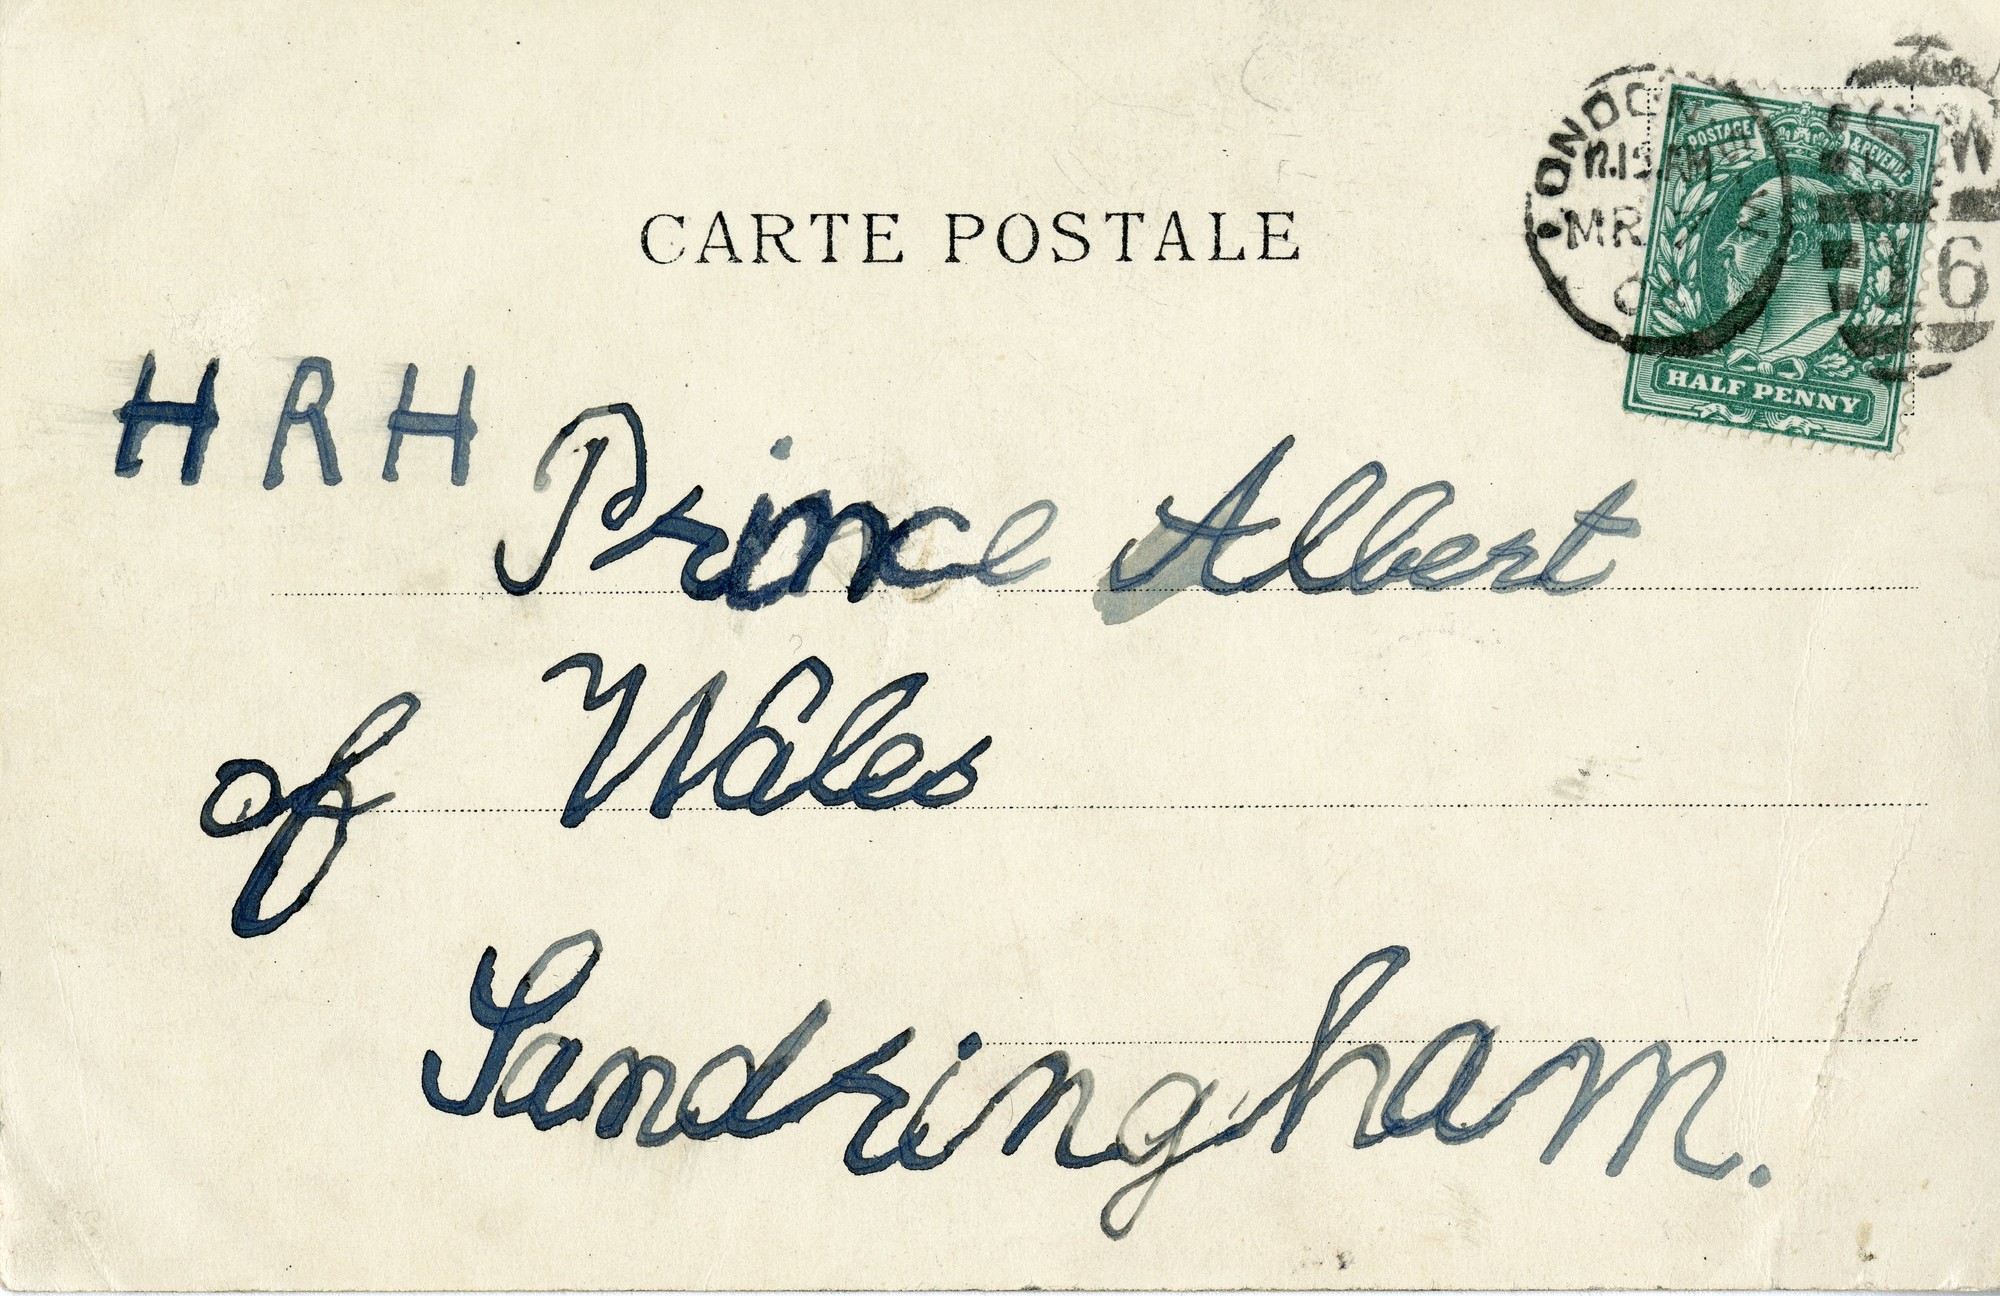 CARTE POSTALE
LONDON
12.15 AM
MR
POSTAGE & REVENUE
HALF PENNY
W
6
HRH Prince Albert
of Wales
Sandringham.